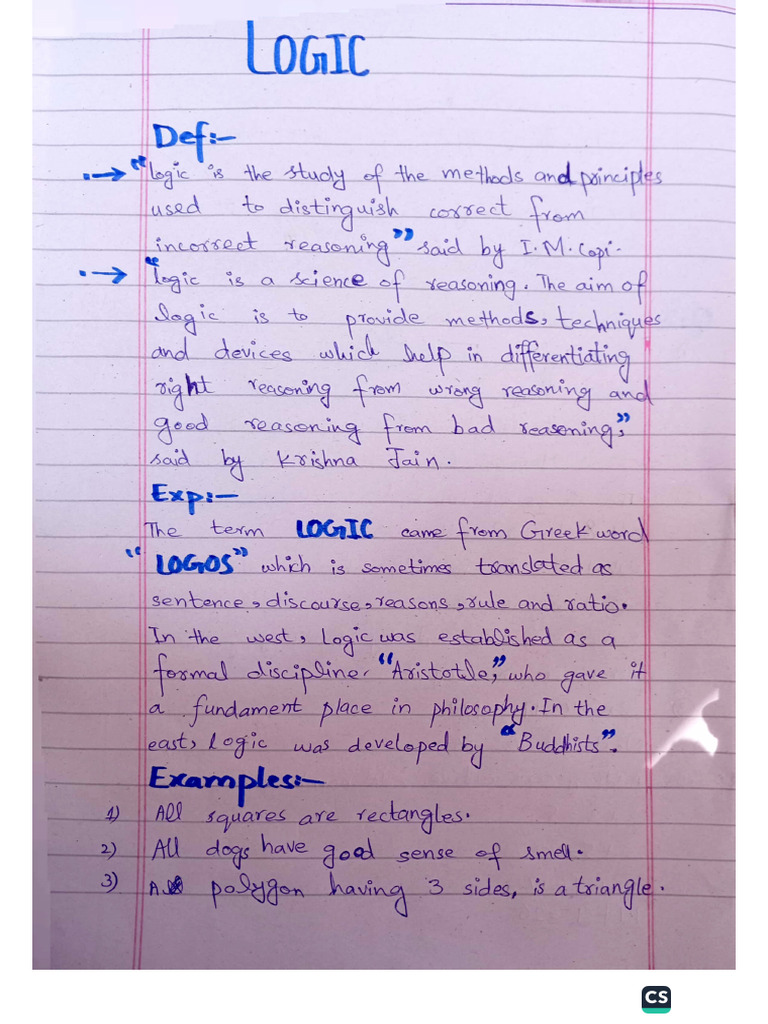 LOGIC
Def:-
"logic is the study of the methods and principles
used to distinguish correct from
incorrect reasoning" said by I.M.Copi.
"logic is a science of reasoning. The aim of
logic is to provide methods, techniques
and devices which help in differentiating
right reasoning from wrong reasoning and
good reasoning from bad reasoning,"
said by Krishna Jain.
Exp:-
The term LOGIC came from Greek word
"LOGOS" which is sometimes translated as
sentence, discourse, reasons, rule and ratio.
In the west, Logic was established as a
formal discipline. "Aristotle," who gave it
a fundament place in philosophy. In the
east, logic was developed by "Buddhists".
Examples:-
1) All squares are rectangles.
2) All dogs have good sense of smell.
3) A polygon having 3 sides, is a triangle.
CS